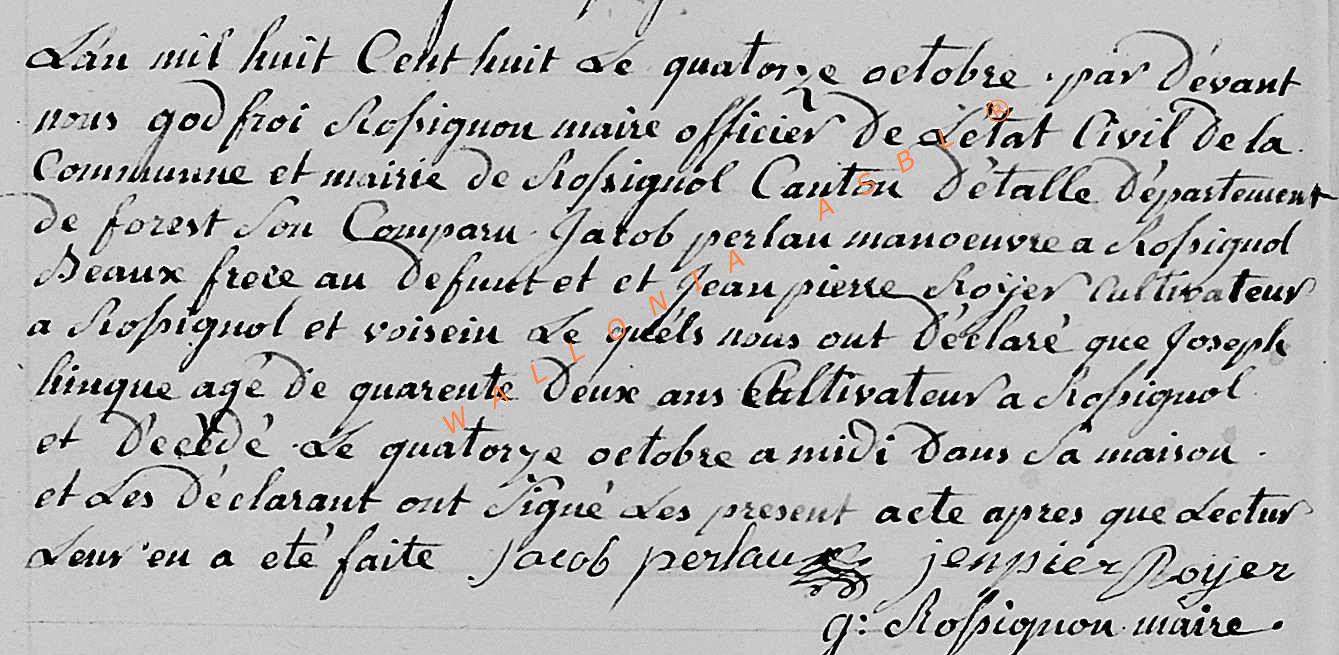 L'an mil huit Cent huit Le quatorze octobre par dévant
nous godfroi Rossignon maire officier de Létat Civil de la
Communne et mairie de Rossignol Canton d'étalle département
de forest Son Comparu Jacob perlau manoeuvre a Rossignol
Beaux frere au defunt et et Jean pierre Royer Cultivateur
a Rossignol et voisein Le quéls nous ont déclaré que Joseph
hinque agé de quarente deux ans Cultivateur a Rossignol
et décédé Le quatorze octobre a midi dans Sa maison
et Les déclarant ont Signé Les present acte apres que Lectur
Leur en a eté faite Jacob perlau jenpier Royer
g: Rossignon maire.
WALLONIA ASBL ®